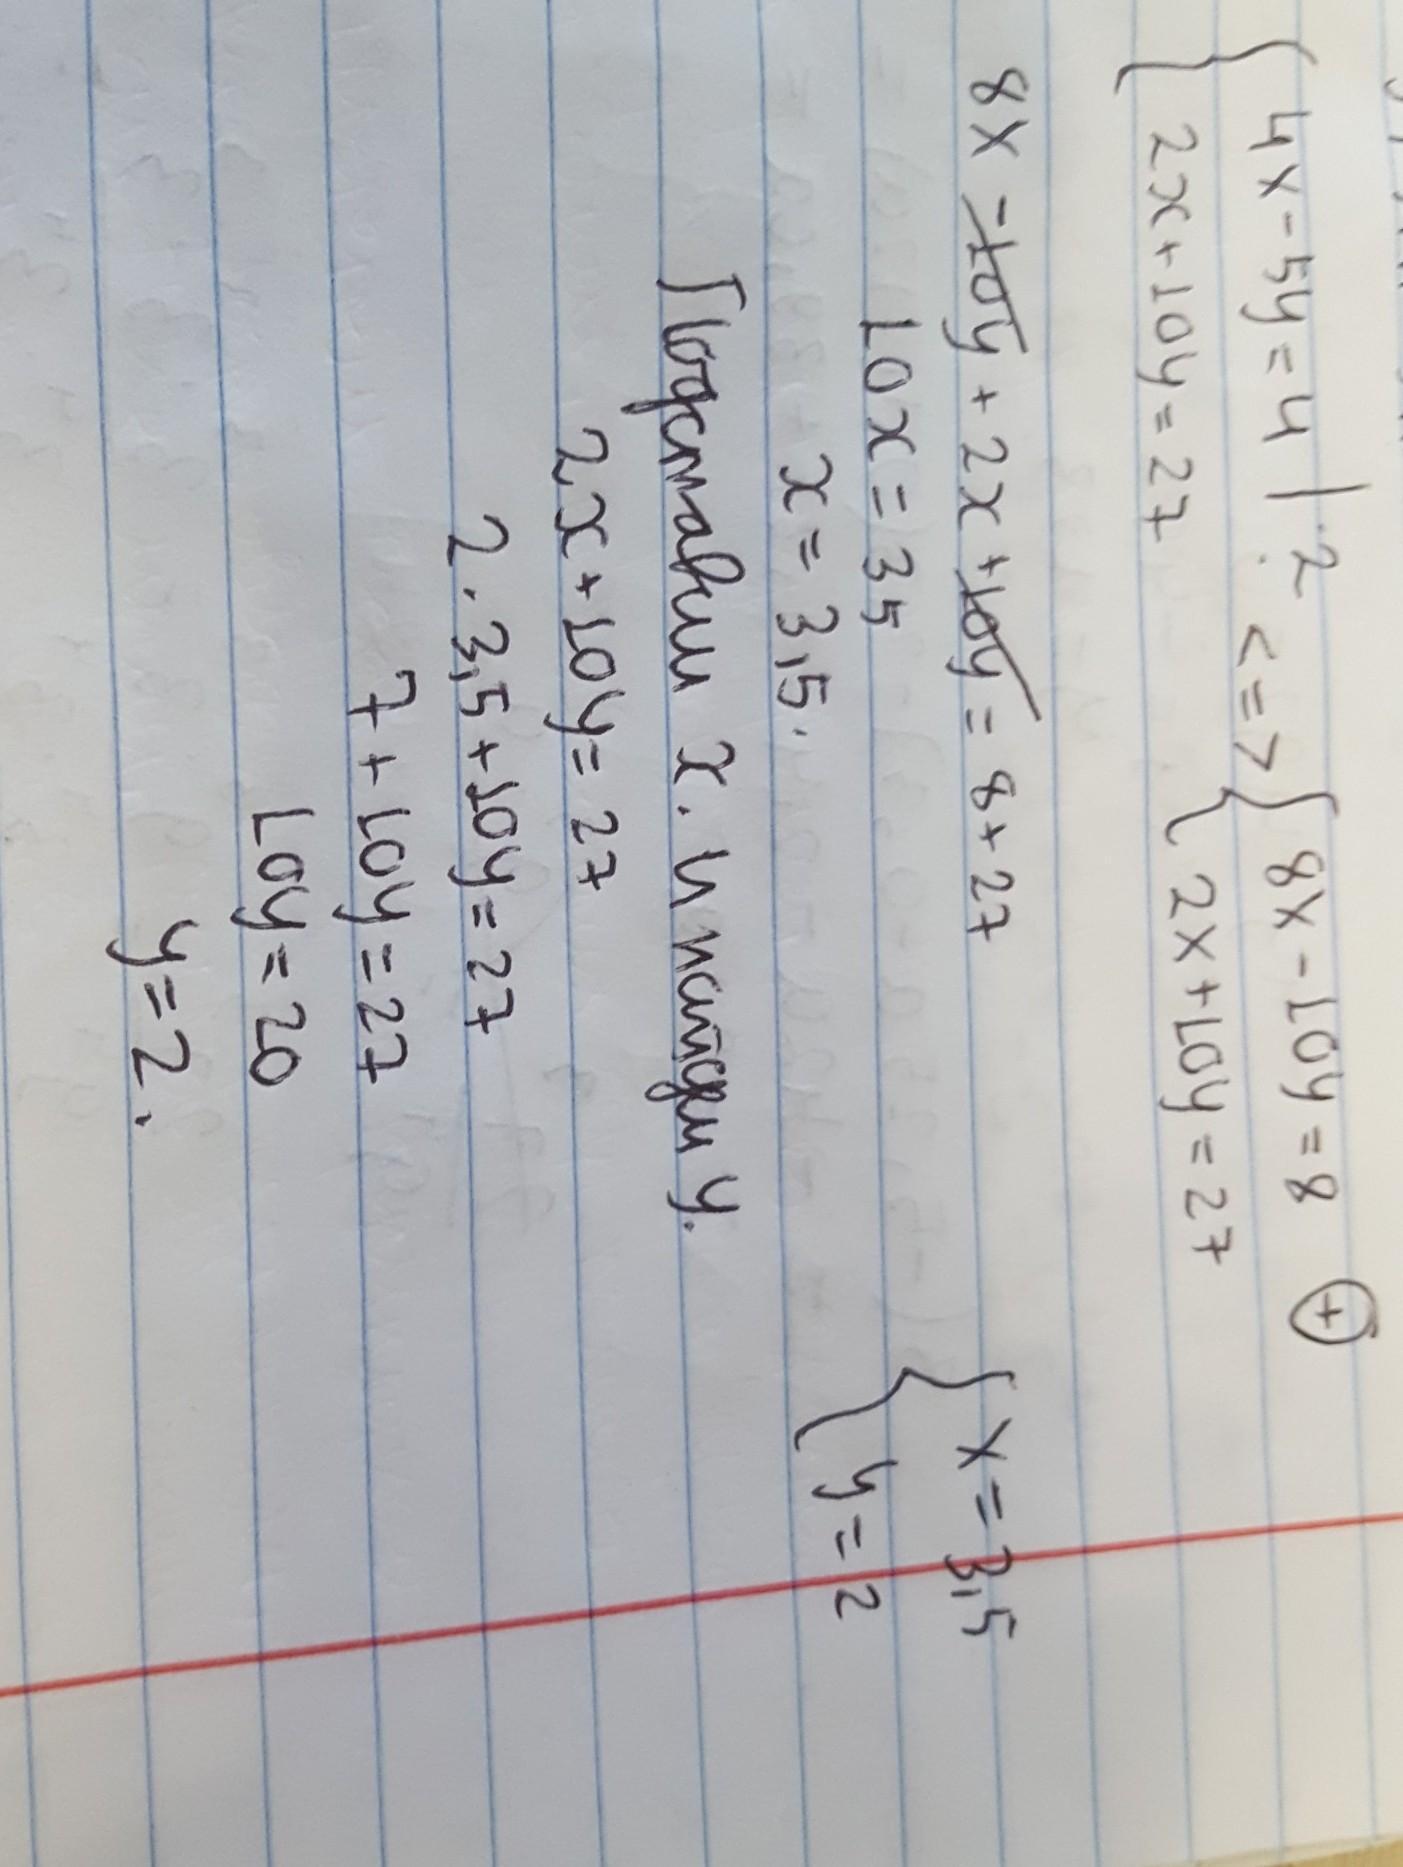 { 4x - 5y = 4 | · 2 <=> { 8x - 10y = 8 (+)
{ 2x + 10y = 27 { 2x + 10y = 27
8x - 10y + 2x + 10y = 8 + 27 { x = 3,5
10x = 35 { y = 2
x = 3,5.
Подставим x. и найдем y.
2x + 10y = 27
2 · 3,5 + 10y = 27
7 + 10y = 27
10y = 20
y = 2.